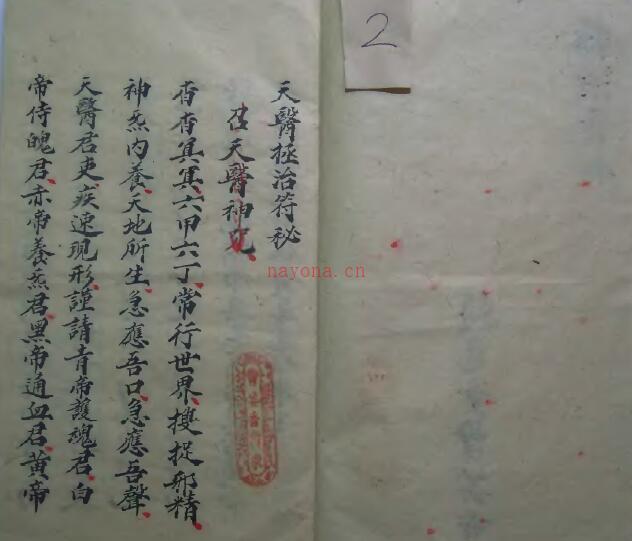 2
天醫拯治符秘
召天醫神咒
杳杳冥冥六甲六丁常行世界搜捉邪精
神炁內養天地所生急應吾口急應吾聲
天醫君吏疾速現形謹請青帝護魂君白
帝侍魄君赤帝養炁君黑帝通血君黃帝
nayona.cn